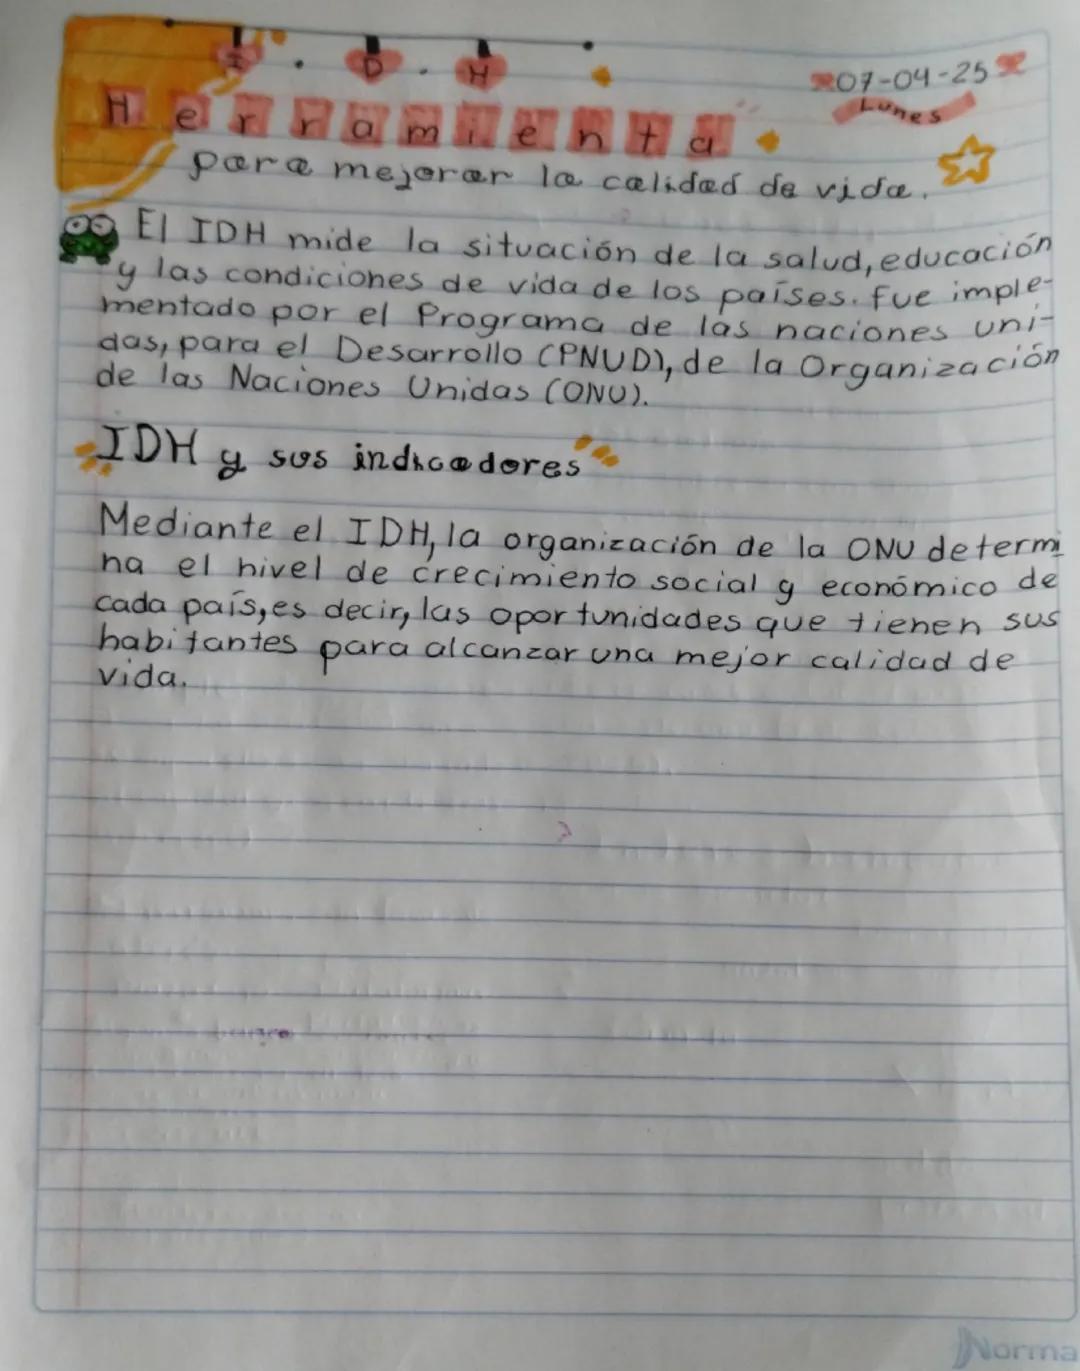 I. D. H
07-04-25
Lunes
Herramienta
para mejorar la calidad de vida.
El IDH mide la situación de la salud, educación
y las condiciones de vida de los países. fue imple-
mentado por el Programa de las naciones uni-
das, para el Desarrollo (PNUD), de la Organización
de las Naciones Unidas (ONU).
IDH y sus indicadores
Mediante el IDH, la organización de la ONU determi
na el nivel de crecimiento social y económico de
cada país, es decir, las oportunidades que tienen sus
habitantes para alcanzar una mejor calidad de
vida.
Norma